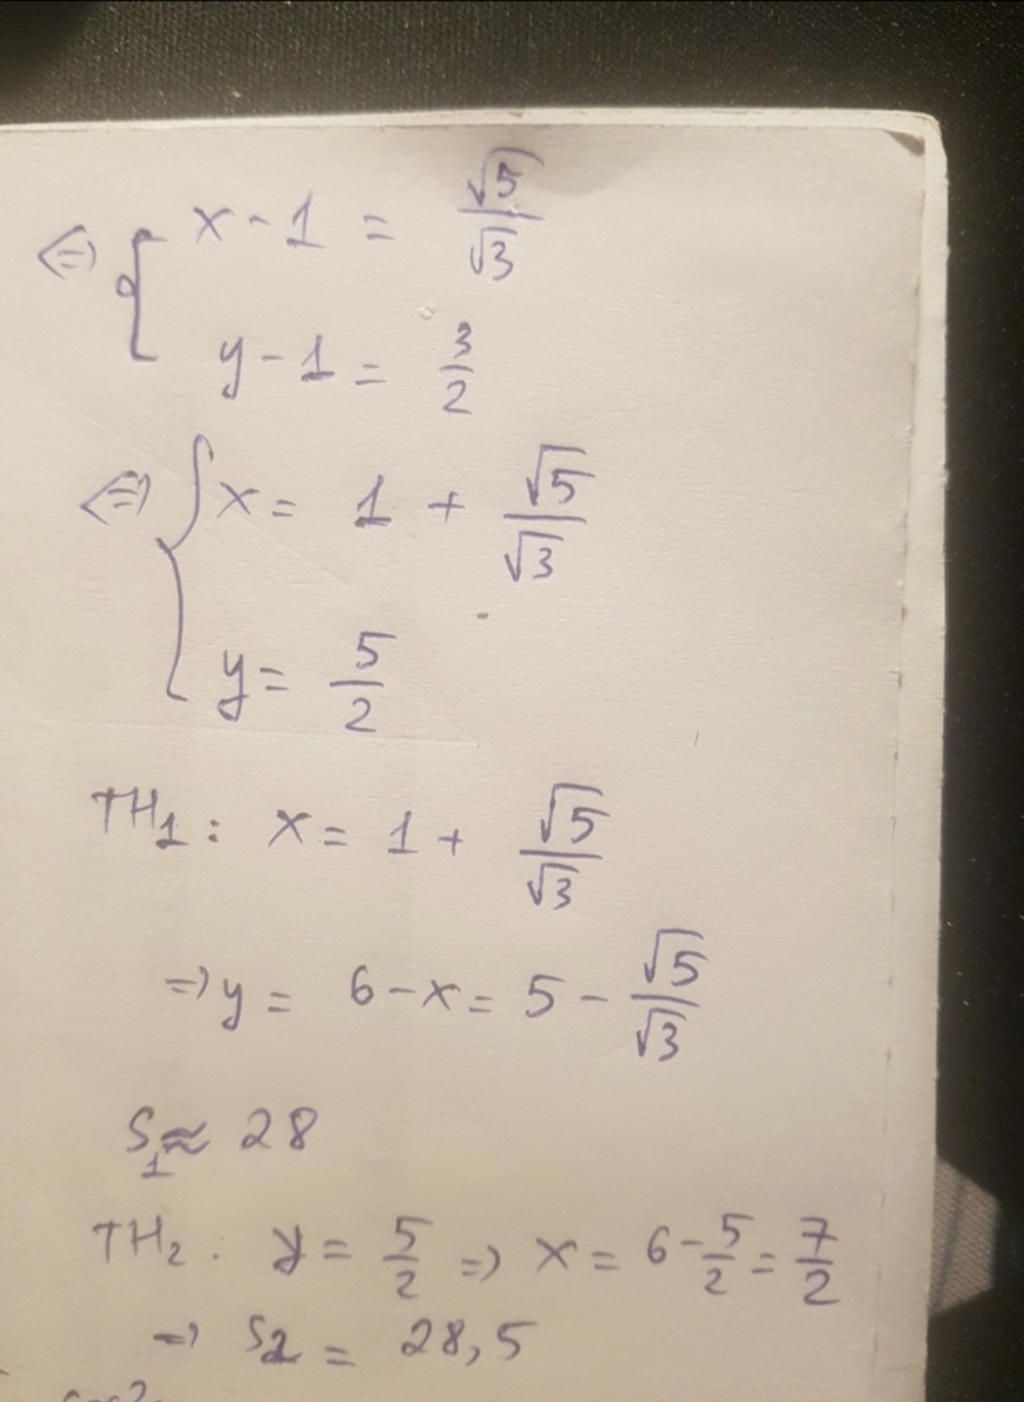 ⇔ { x - 1 = √5/√3
y - 1 = 3/2
⇔ { x = 1 + √5/√3
y = 5/2
TH1: x = 1 + √5/√3
⇒ y = 6 - x = 5 - √5/√3
S1 ≈ 28
TH2: y = 5/2 ⇒ x = 6 - 5/2 = 7/2
⇒ S2 = 28,5